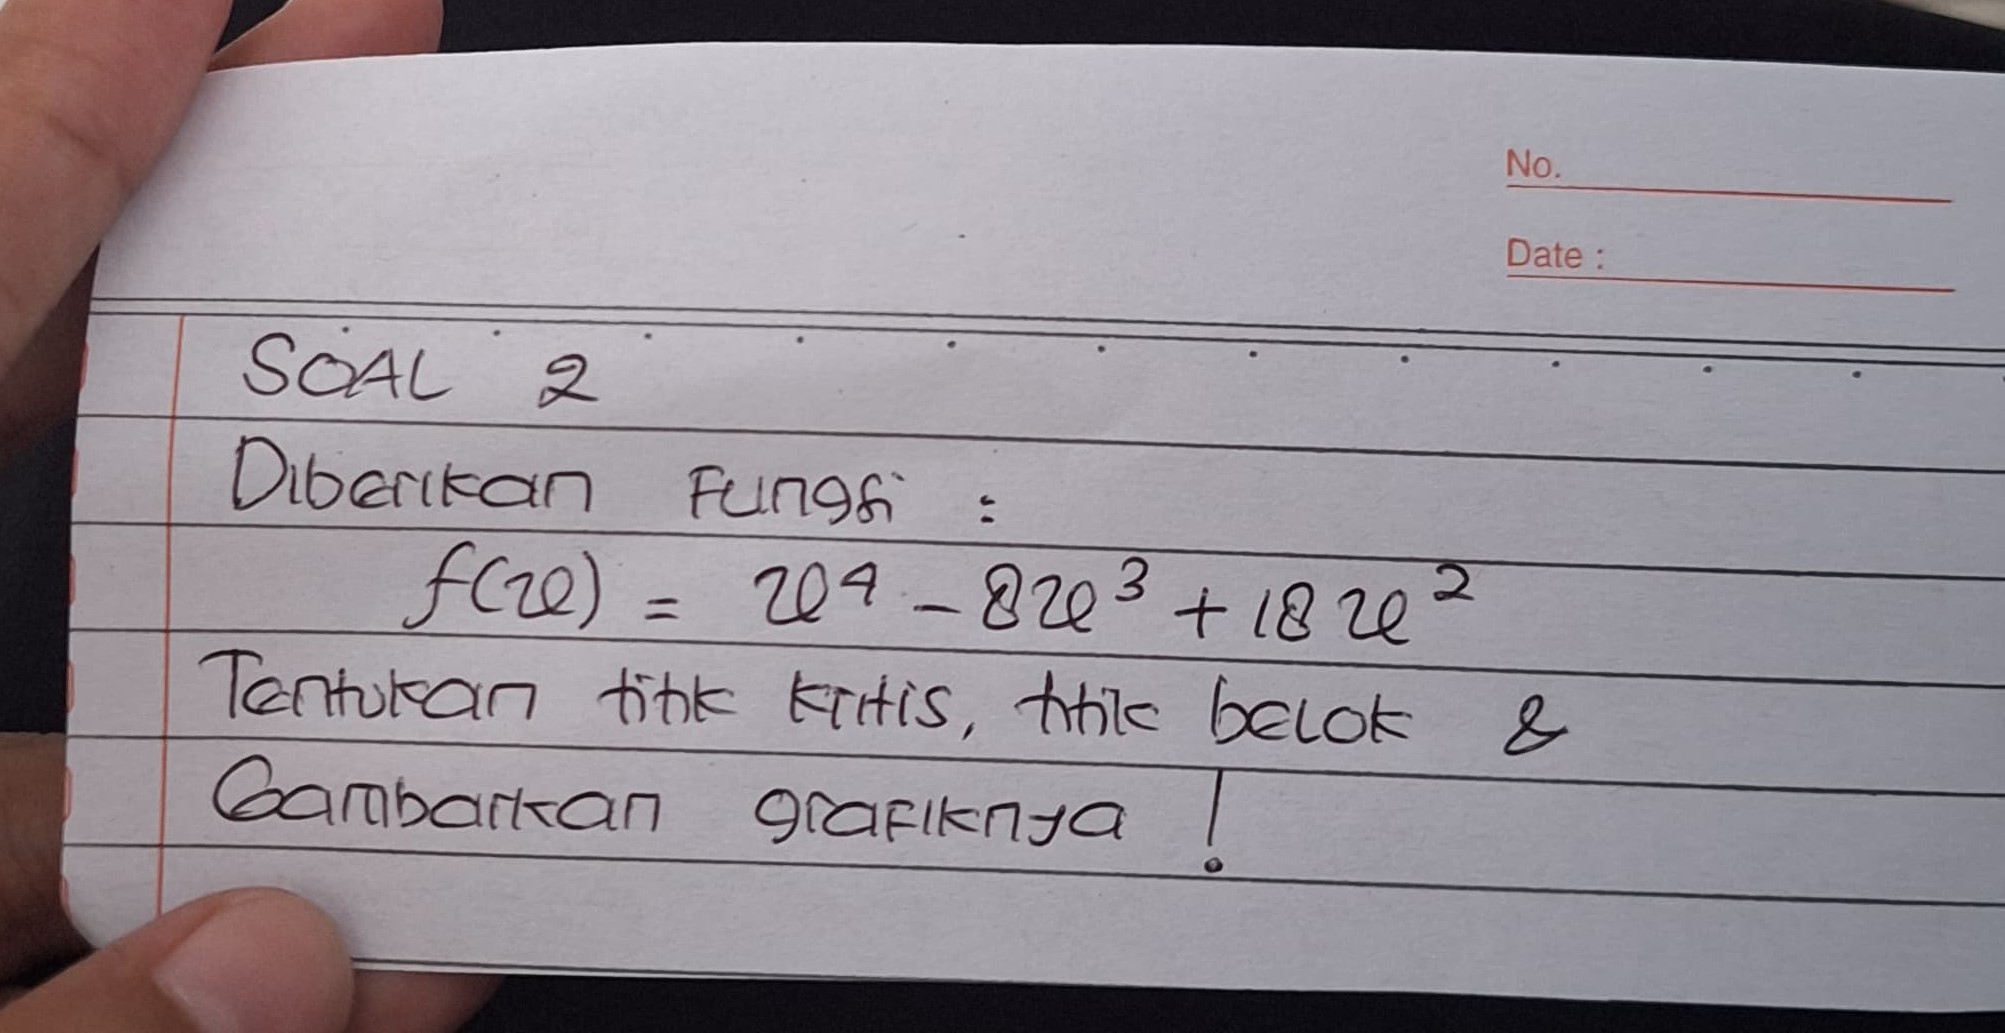 No.
Date :
SOAL 2
Diberikan Fungsi :
f(x) = x⁴ - 8x³ + 18x²
Tentukan titik kritis, titik belok &
Gambarkan grafiknya !